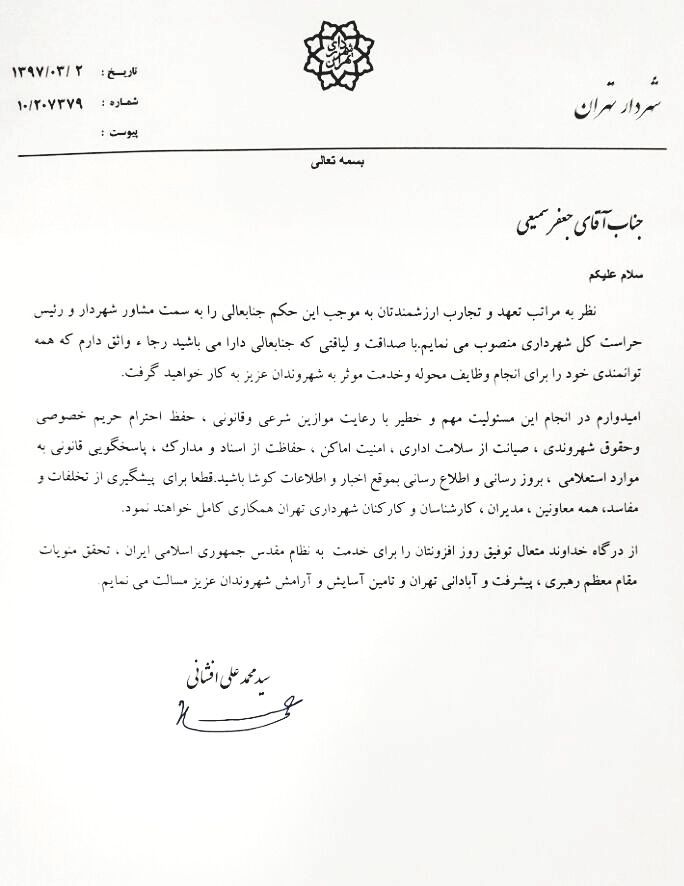 شهرداری تهران
شهردار تهران
تاریخ : ۱۳۹۷/۰۳/۲
شماره : ۱۰/۲۰۷۳۷۹
پیوست :
بسمه تعالی
جناب آقای جعفر سمیعی
سلام علیکم
نظر به مراتب تعهد و تجارب ارزشمندتان به موجب این حکم جنابعالی را به سمت مشاور شهردار و رئیس
حراست کل شهرداری منصوب می نمایم.با صداقت و لیاقتی که جنابعالی دارا می باشید رجا ء واثق دارم که همه
توانمندی خود را برای انجام وظایف محوله وخدمت موثر به شهروندان عزیز به کار خواهید گرفت.
امیدوارم در انجام این مسئولیت مهم و خطیر با رعایت موازین شرعی وقانونی ، حفظ احترام حریم خصوصی
وحقوق شهروندی ، صیانت از سلامت اداری ، امنیت اماکن ، حفاظت از اسناد و مدارك ، پاسخگویی قانونی به
موارد استعلامی ، بروز رسانی و اطلاع رسانی بموقع اخبار و اطلاعات کوشا باشید.قطعا برای پیشگیری از تخلفات و
مفاسد، همه معاونین ، مدیران ، کارشناسان و کارکنان شهرداری تهران همکاری کامل خواهند نمود.
از درگاه خداوند متعال توفیق روز افزونتان را برای خدمت به نظام مقدس جمهوری اسلامی ایران ، تحقق منویات
مقام معظم رهبری ، پیشرفت و آبادانی تهران و تامین آسایش و آرامش شهروندان عزیز مسالت می نمایم.
سید محمد علی افشانی